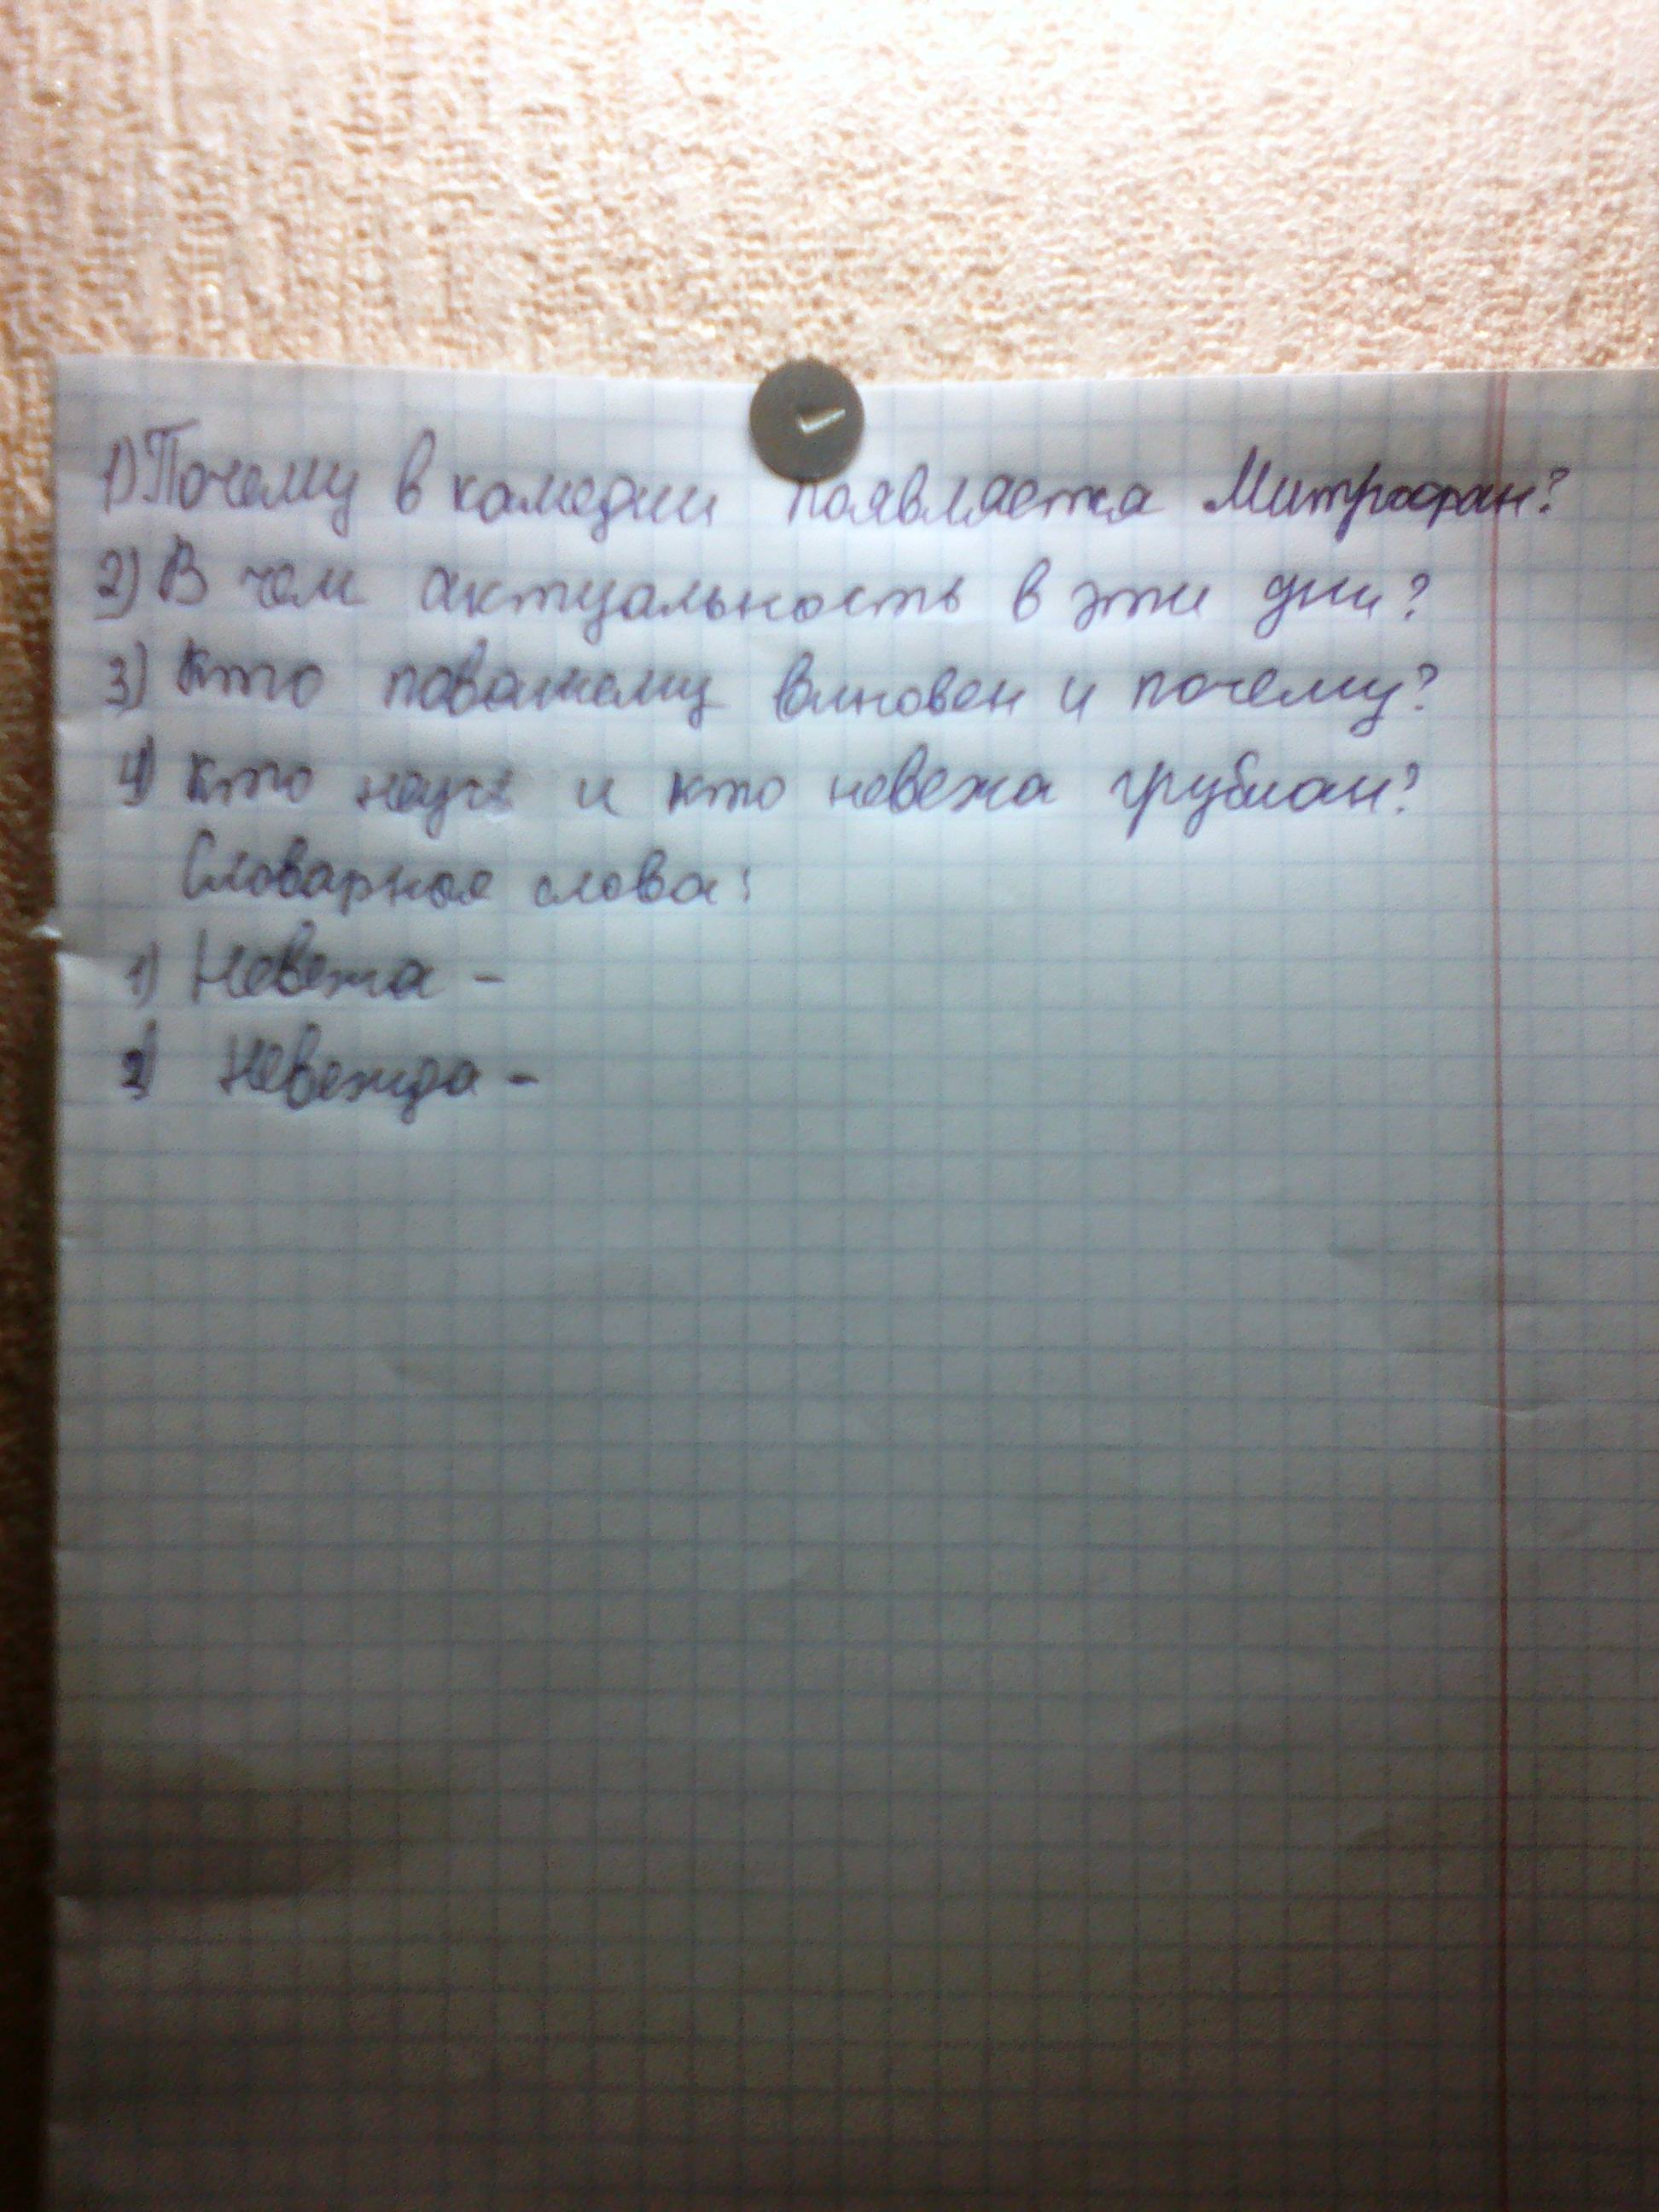 1) Почему в комедии появляется Митрофан?
2) В чем актуальность в эти дни?
3) Кто повашему виновен и почему?
4) Кто неуч и кто невежа грубиан?
Словарное слова:
1) Невежа -
2) Невежда -